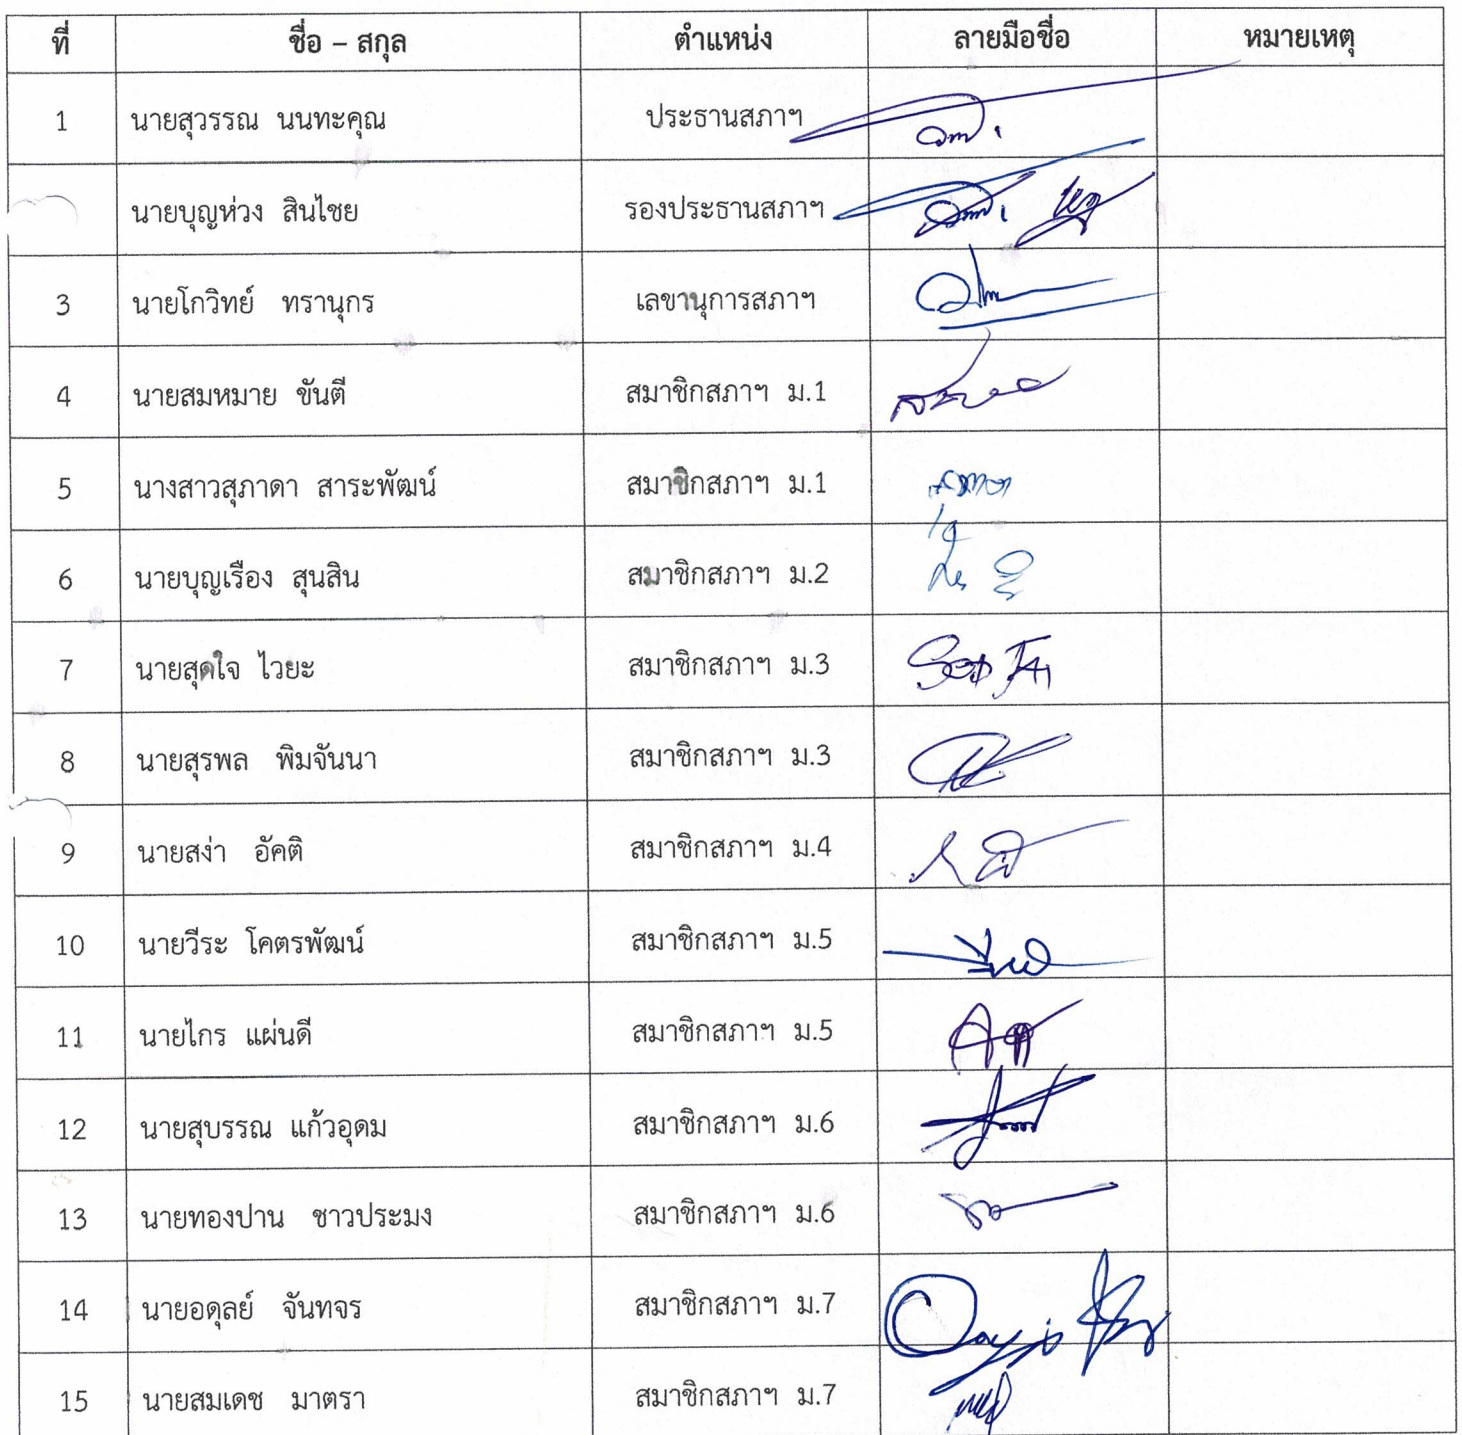 ที่ ชื่อ – สกุล ตำแหน่ง ลายมือชื่อ หมายเหตุ
1 นายสุวรรณ นนทะคุณ ประธานสภาฯ
นายบุญห่วง สินไชย รองประธานสภาฯ
3 นายโกวิทย์ ทรานุกร เลขานุการสภาฯ
4 นายสมหมาย ขันตี สมาชิกสภาฯ ม.1
5 นางสาวสุภาดา สาระพัฒน์ สมาชิกสภาฯ ม.1
6 นายบุญเรือง สุนสิน สมาชิกสภาฯ ม.2
7 นายสุดใจ ไวยะ สมาชิกสภาฯ ม.3
8 นายสุรพล พิมจันนา สมาชิกสภาฯ ม.3
9 นายสง่า อัคติ สมาชิกสภาฯ ม.4
10 นายวีระ โคตรพัฒน์ สมาชิกสภาฯ ม.5
11 นายไกร แผ่นดี สมาชิกสภาฯ ม.5
12 นายสุบรรณ แก้วอุดม สมาชิกสภาฯ ม.6
13 นายทองปาน ชาวประมง สมาชิกสภาฯ ม.6
14 นายอดุลย์ จันทจร สมาชิกสภาฯ ม.7
15 นายสมเดช มาตรา สมาชิกสภาฯ ม.7